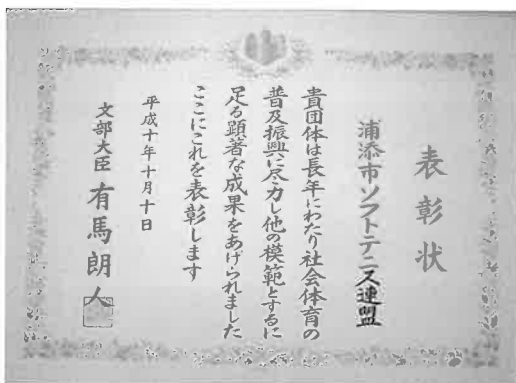 表彰状
浦添市ソフトテニス連盟
貴団体は長年にわたり社会体育の
普及振興に尽力し他の模範とするに
足る顕著な成果をあげられました
ここにこれを表彰します
平成十年十月十日
文部大臣 有馬朗人